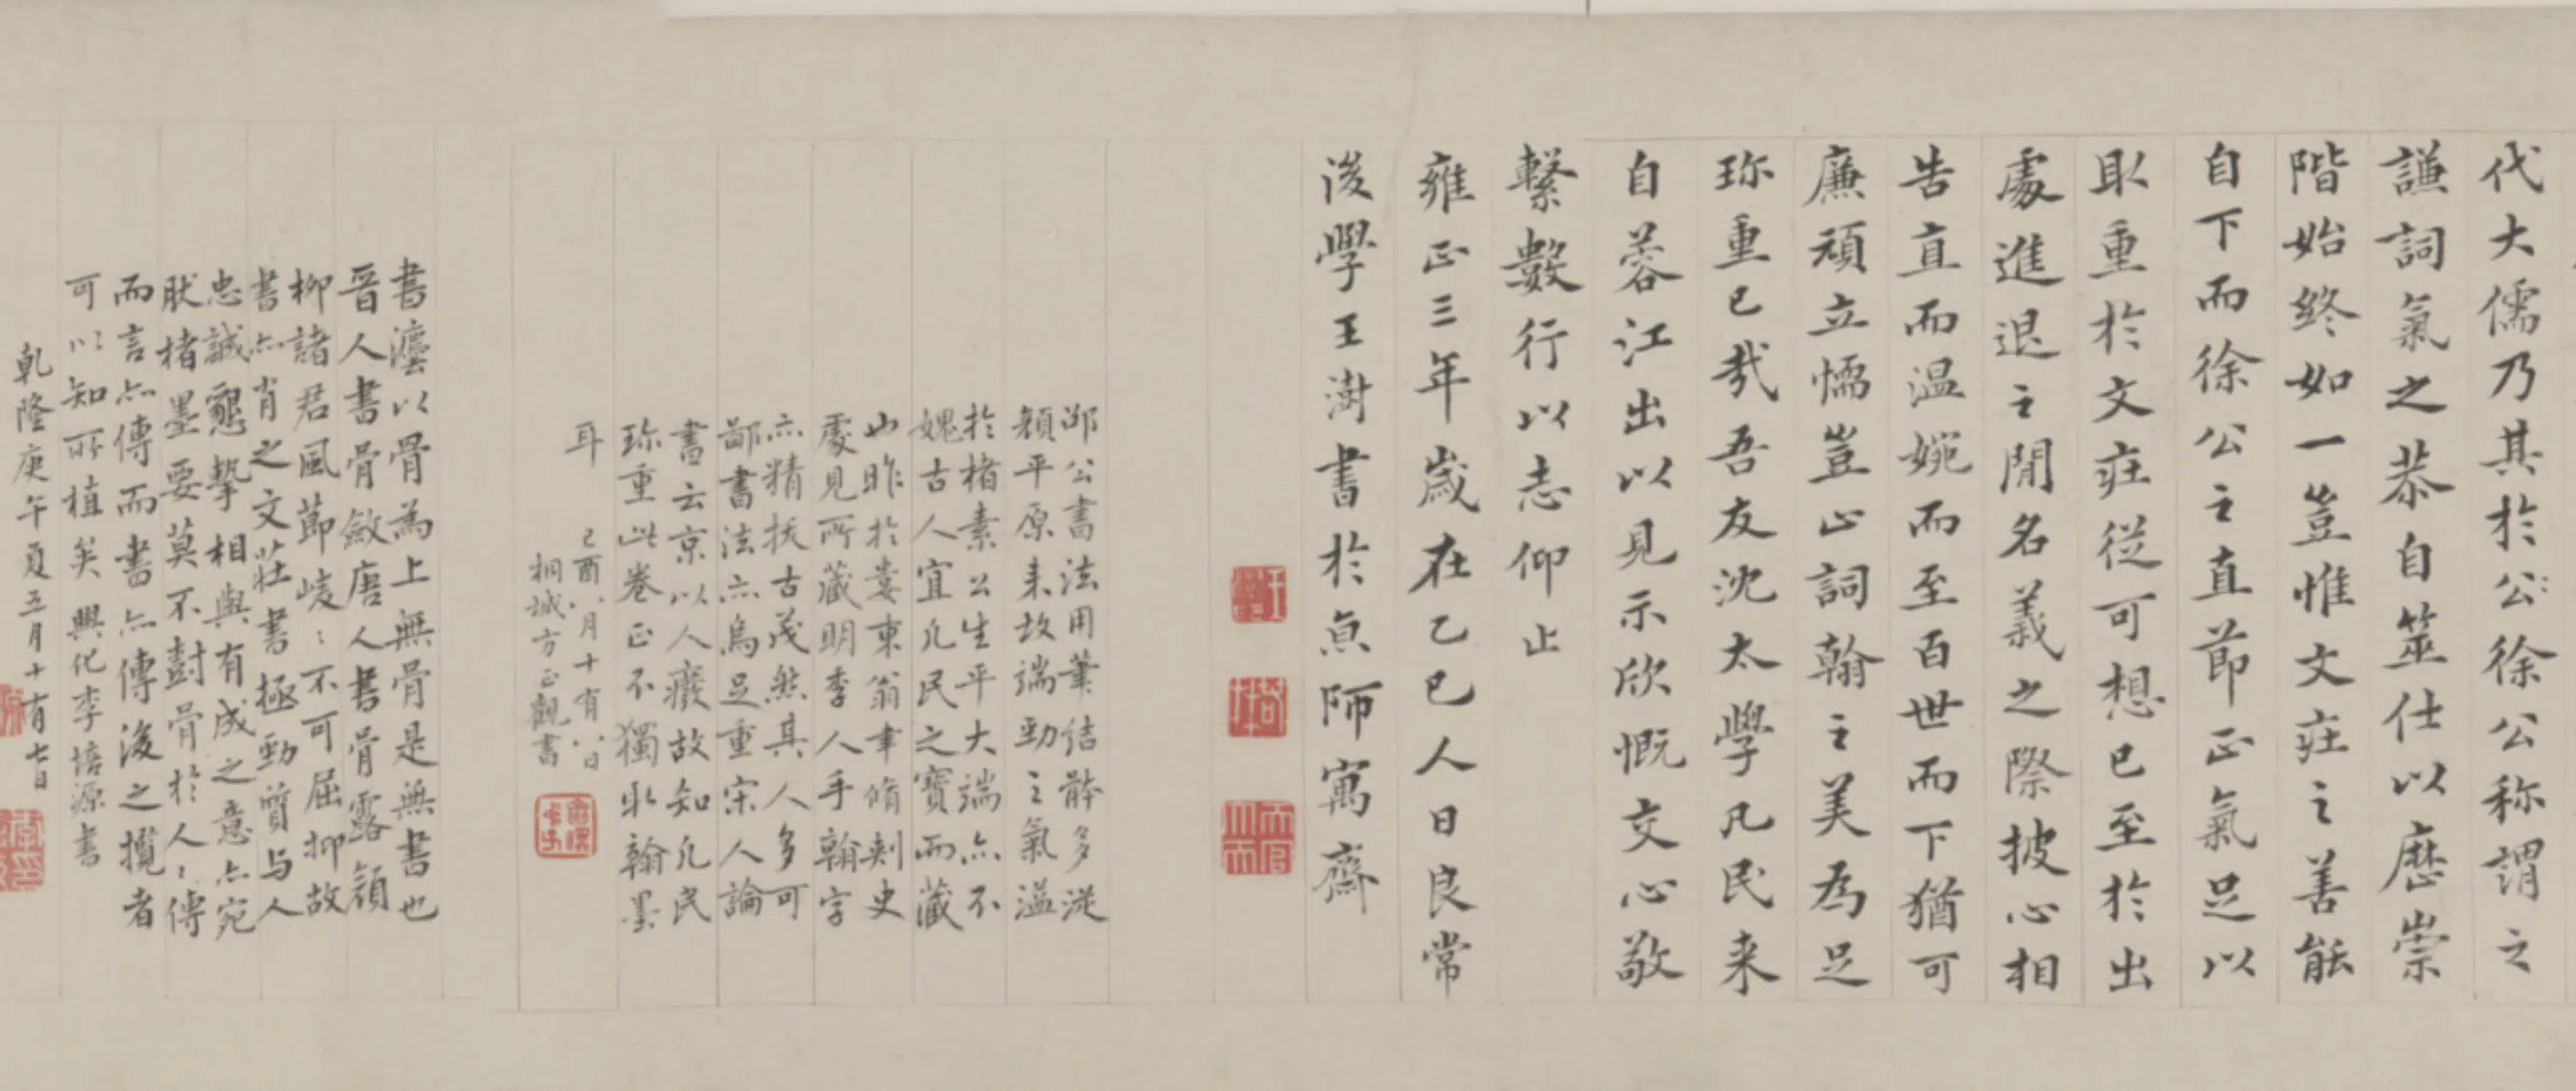 代大儒乃其於公徐公称謂之
謙詞氣之恭自筮仕以歷崇
階始終如一豈惟文莊之善能
自下而徐公之直節正氣足以
取重於文莊從可想已至於出
處進退之間名義之際披心相
告直而温婉而至百世而下猶可
廉頑立懦豈止詞翰之美為足
珎重已哉吾友沈太學凡民来
自蓉江出以見示欣慨交心敬
繫數行以志仰止
雍正三年歲在乙巳人日良常
後學王澍書於魚師寓齋
邵公書法用筆結體多從
顏平原来故端勁之氣溢
於楮素公生平大端亦不
媿古人宜凡民之寶而藏
也昨於婁東翁聿脩刺史
處見所藏明季人手翰字
亦精抚古茂然其人多可
鄙書法亦烏足重宋人論
書云京以人癈故知凡民
珎重此卷正不獨取翰墨
耳
己酉八月十有八日
桐城方正觀書
書灋以骨為上無骨是無書也
晉人書骨斂唐人書骨露顏
柳諸君風節崚〻不可屈抑故
書亦肖之文莊書極勁質与人
忠誠懇摯相與有成之意亦宛
肰楮墨要莫不討骨於人〻傳
而言亦傳而書亦傳後之攬者
可以知所植矣興化李培源書
乾隆庚午夏五月十有七日